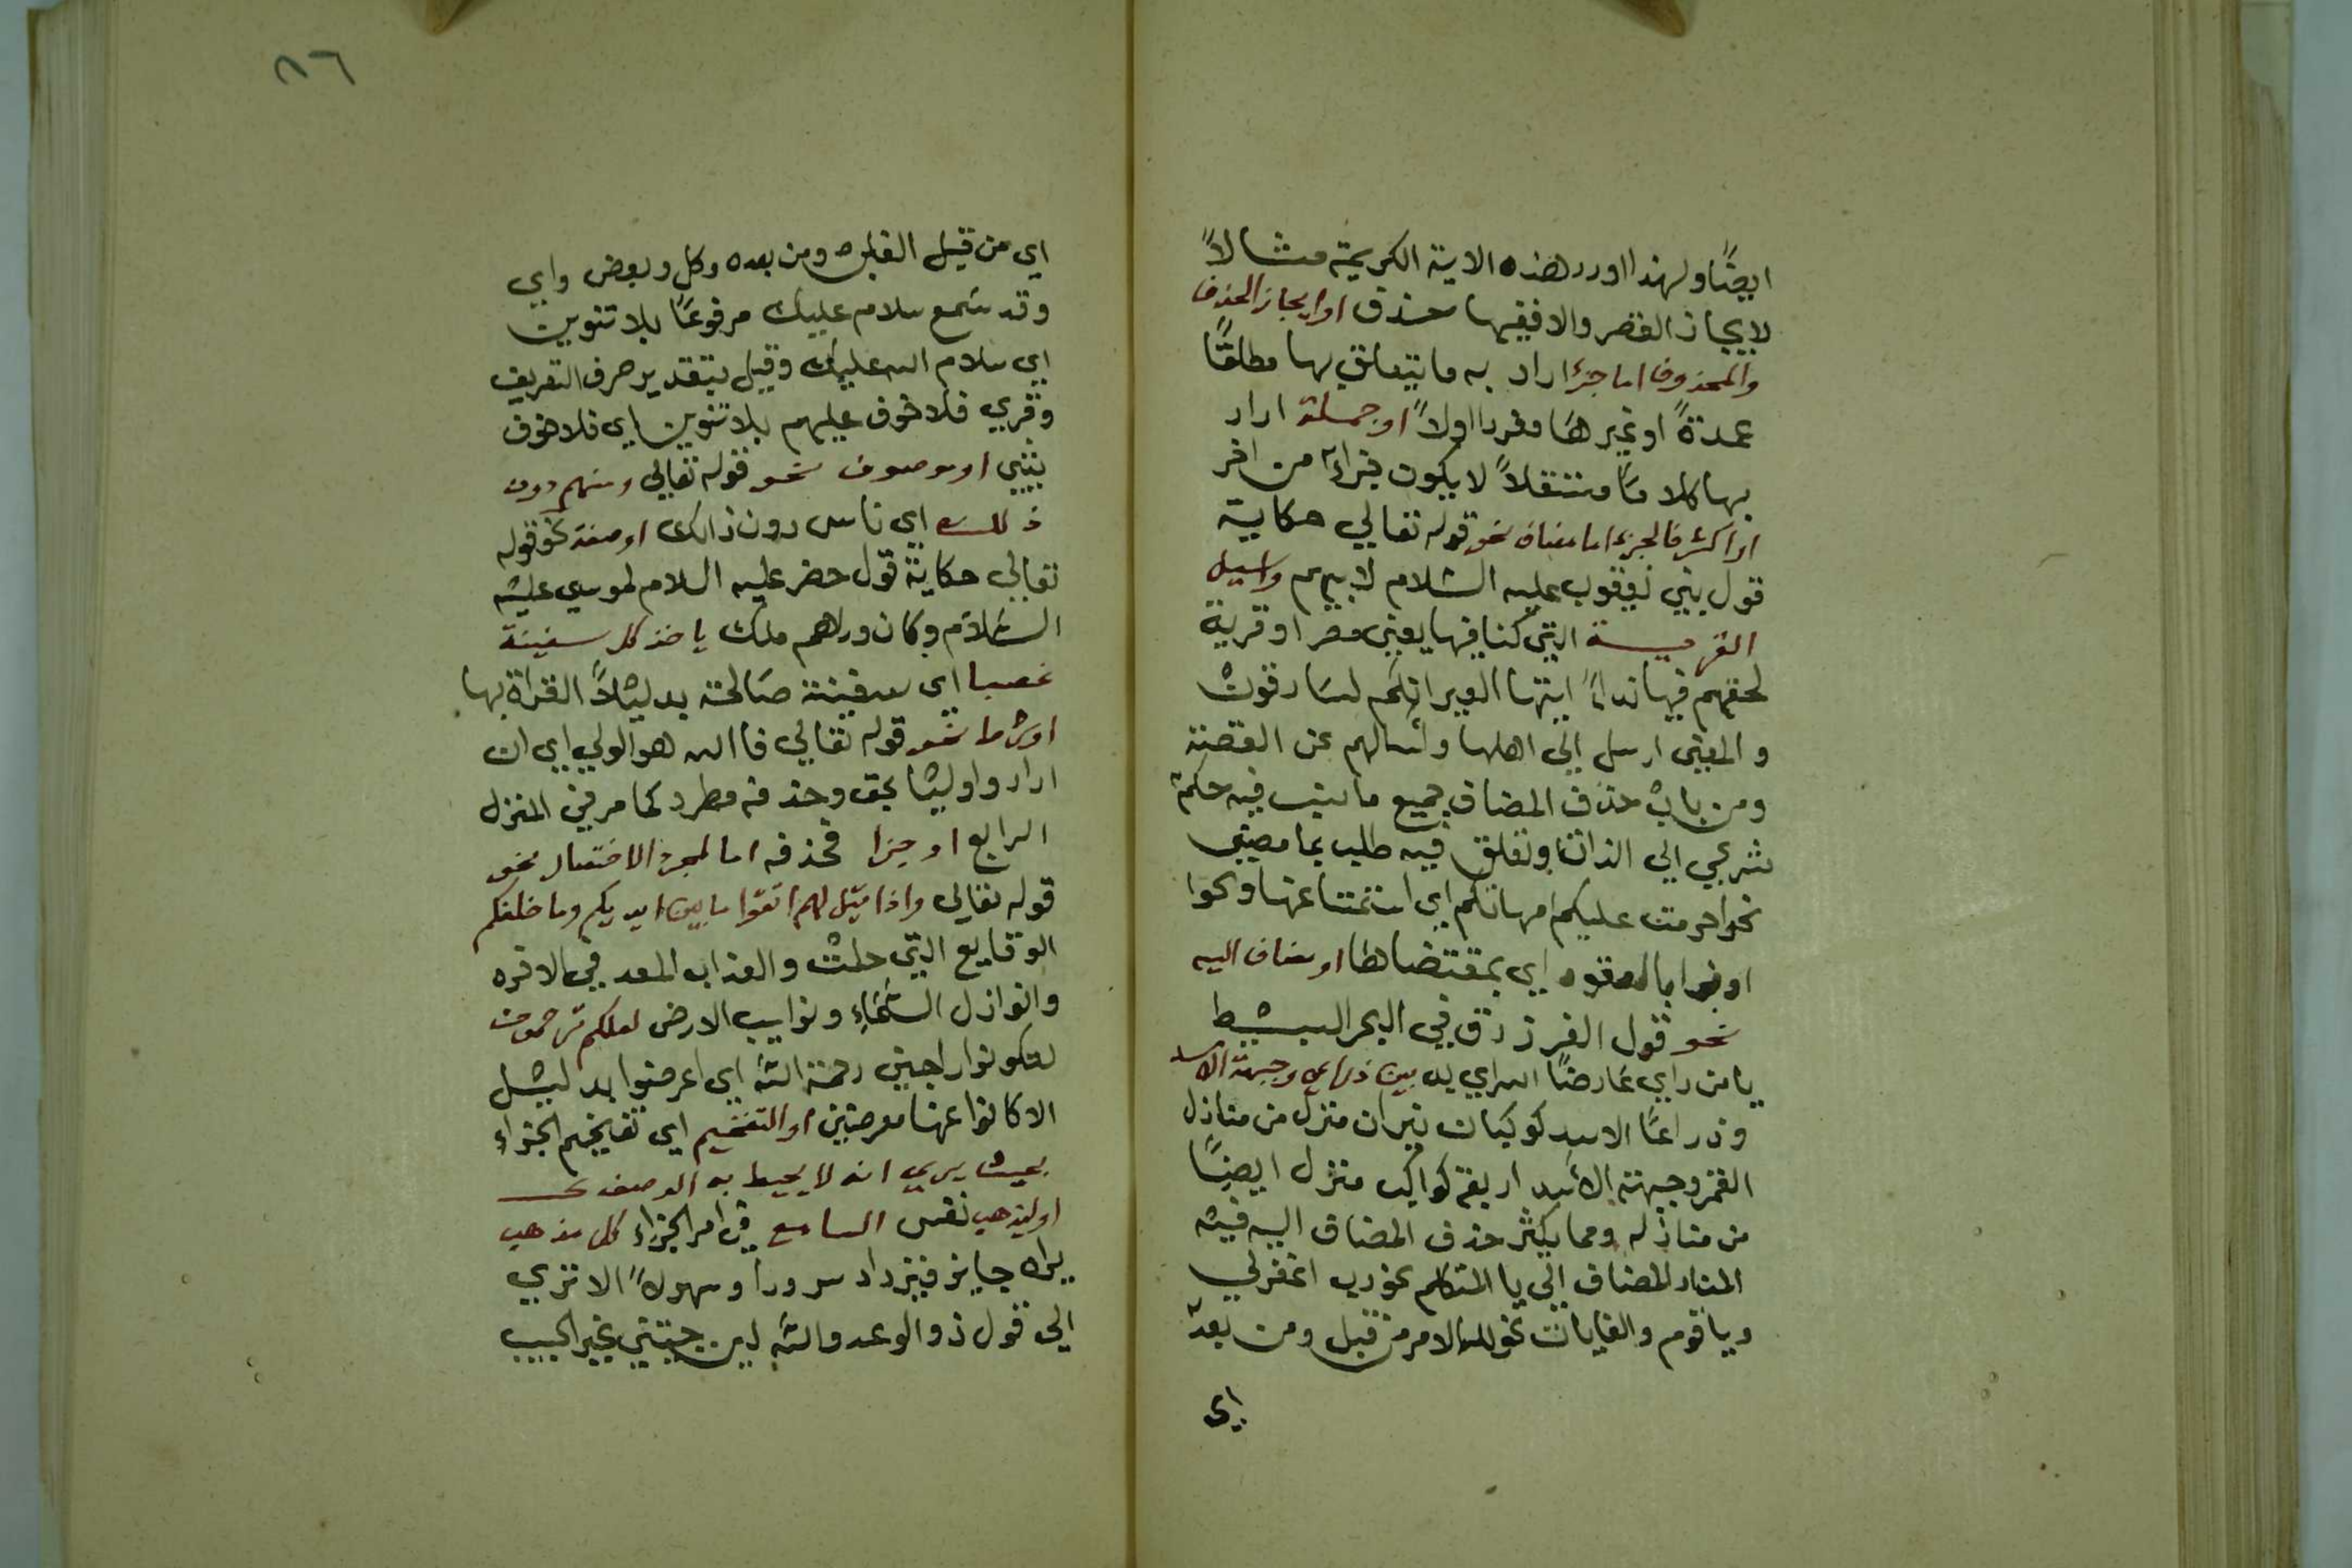 ايضًا ولهذا اورد هذه الاية الكريمة مثالاً
لايجاز القصر والا ففيها حذف او ايجاز الحذف
والمحذوف اما جزء اراد به ما يتعلق بها مطلقًا
عمدةً او غيرها مفردا اولاً او جملة اراد
بها كلامًا مستقلاً لا يكون جزاءً من اخر
او اكثر فالجزء اما مضاف نحو قوله تعالي حكاية
قول بني يعقوب عليه السلام لابيهم واسيل
القرية التي كنا فيها يعني مصر او قرية
لحقهم فيها ايتها العير انكم لسارقون
والمعني ارسل الي اهلها واسالهم عن القصة
ومن باب حذف المضاف جميع ما ينسب فيه حكم
شرعي الي الذات وتعلق فيه طلب بما مضي
نحو حرمت عليكم امهاتكم اي استمتاعها ونحوا
اوفوا بالعقود اي بمقتضاها او مضاف اليه
نحو قول الفرزدق في البحر البسيط
يا من راي عارضًا اسراي به بين ذراعي وجبهة الاسد
وذراعا الاسد كوكبان نيران منزل من منازل
القمر وجبهة الاسد اربعة كواكب منزل ايضًا
من منازله ومما يكثر حذف المضاف اليه فيه
المناد المضاف الي يا المتكلم نحو رب اغفرلي
ويا قوم والغايات نحو لله الامر من قبل ومن بعد
اي
٨٦
اي من قبل الغلبه ومن بعده وكل وبعض واي
وقد سمع سلام عليك مرفوعًا بلا تنوين
اي سلام الله عليك وقيل بتقدير حرف التعريف
وقري فلا خوف عليهم بلا تنوين اي فلا خوف
شي او موصوف نحو قوله تعالي ومنهم دون
ذلك اي ناس دون ذالك او صفة نحو قوله
تعالي حكاية قول خضر عليه السلام لموسي عليه
السلام وكان وراهم ملك ياخذ كل سفينة
غصبا اي سفينة صالحة بدليل القراة بها
او شرط نحو قوله تعالي فا الله هو الولي اي ان
اراد واوليا بحق وحذفه مطرد كما مر في المنزل
الرابع او جزا فحذفه اما لمجرد الاختصار نحو
قوله تعالي واذا قيل لهم اتقوا ما بين ايديكم وما خلفكم
الوقايع التي حلت والعذاب المعد في الاخره
وانوازل السماء ونوايب الارض لعلكم ترحمون
لتكونوا راجين رحمة الله اي اعرضوا بدليل
الا كانوا عنها معرضين او التفخيم اي تفخيم الجزاء
بحيث يري انه لا يحيط به الوصف
او ليذهب نفس السامع في امر الجزاء كل مذهب
يراه جايز فيزداد سرورا وسهولاً الا تري
الي قول ذو الوعد والله لين جيتني بخير الحبيب